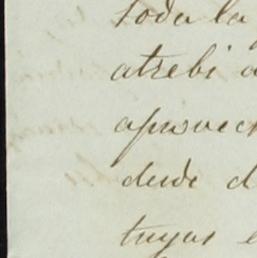 toda la
atrebi a
aprovec
desde d
tuyas e